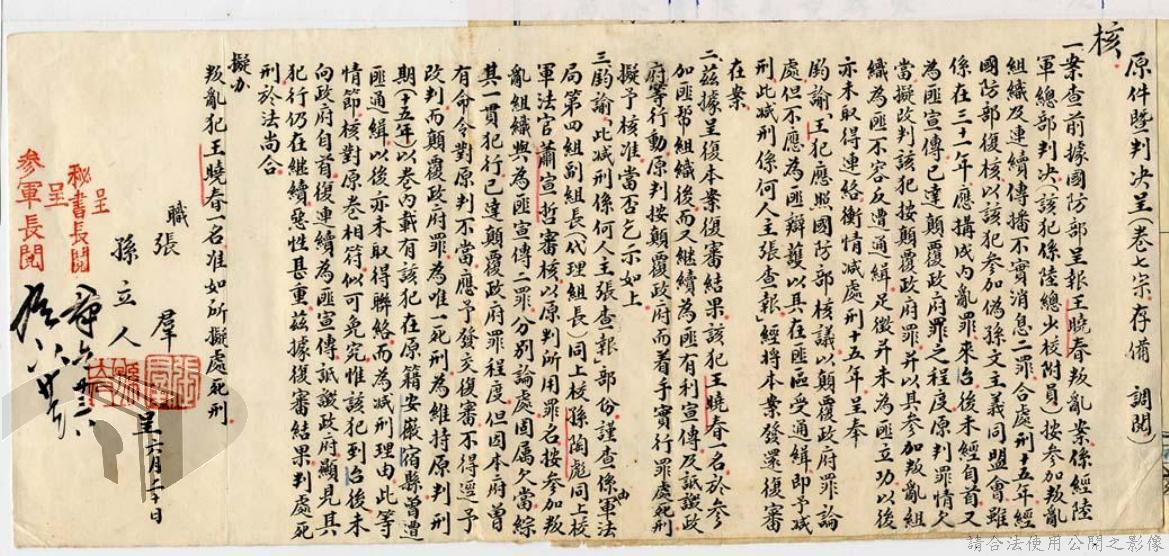 原件暨判决呈(卷七宗存備 調閱)
核
一案查前據國防部呈報王曉春叛亂案係經陸
軍總部判决(該犯係陸總少校附員)按參加叛亂
組織及連續傳播不實消息二罪合處刑十五年經
國防部復核以該犯參加偽孫文主義同盟會雖
係在三十一年應搆成內亂罪來台後未經自首又
為匪宣傳已達顛覆政府罪之程度原判罪情欠
當擬改判該犯按顛覆政府罪并以其參加叛亂組
織為匪不容反遭通緝足徵并未為匪立功以後
亦未取得連絡衡情減處刑十五年呈奉
鈞諭「王犯應照國防部核議以顛覆政府罪論
處但不應為匪辯護以其在匪區受通緝即予減
刑此减刑係何人主張查報」經將本案發還復審
在案
二茲據呈復本案復審結果該犯王曉春一名於參
加匪幫組織後而又繼續為匪有利宣傳及詆譭政
府等行動原判按顛覆政府而着手實行罪處死刑
擬予核准當否乞示如上
三鈞諭「此减刑係何人主張查報」部份謹查係由軍法
局第四組副組長(代理組長)同上校孫陶彪同上校
軍法官蕭宣哲審核以原判所用罪名按參加叛
亂組織與為匪宣傳二罪分別論處固属欠當綜
其一貫犯行已達顛覆政府罪程度但因本府曾
有命令對原判不當應予發交復審不得逕予
改判而顛覆政府罪為唯一死刑為維持原判刑
期(十五年)以卷內載有該犯在原籍安徽宿縣曾遭
匪通緝以後亦未取得聯絡而為减刑理由此等
情節核對原卷相符似可免究惟該犯到台後未
向政府自首復連續為匪宣傳詆譭政府顯見其
犯行仍在繼續惡性甚重茲據復審結果判處死
刑於法尚合
擬办
叛亂犯王曉春一名准如所擬處死刑
職 張 羣
孫 立 人 呈 六月二十日
呈
秘書長閱
呈
參軍長閱
請合法使用公開之影像